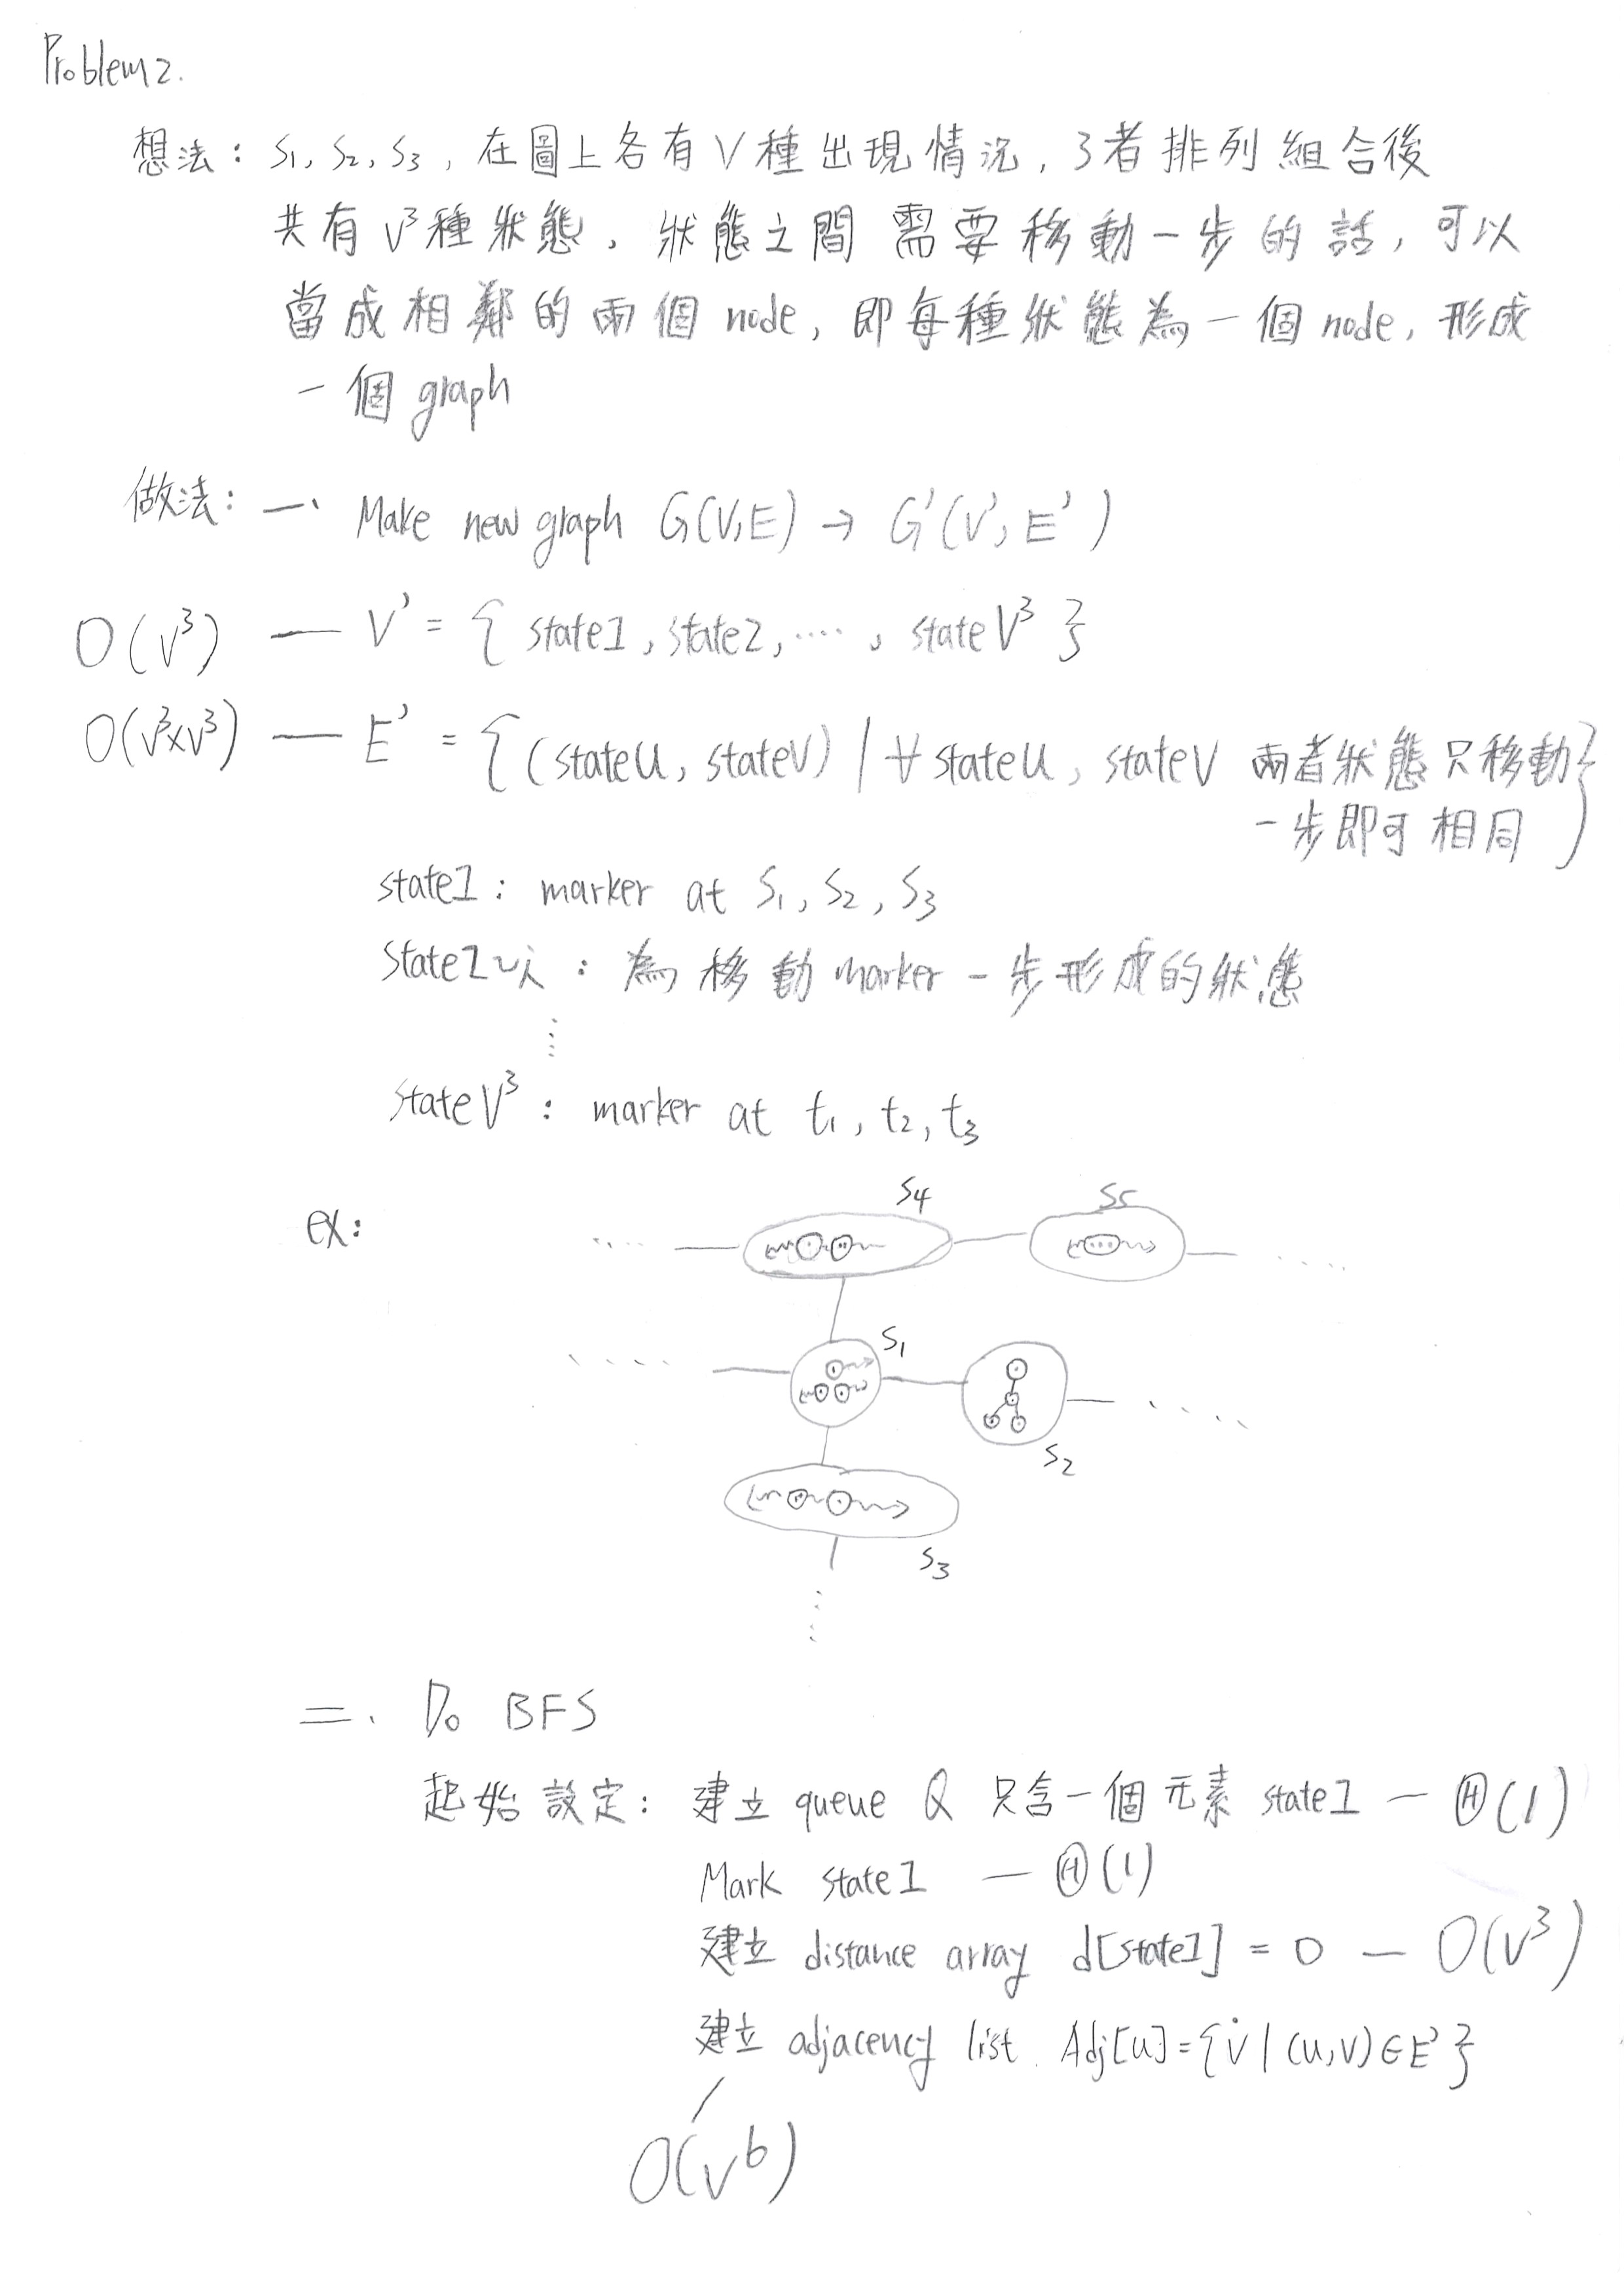 Problem 2.
想法: S₁, S₂, S₃, 在圖上各有 V 種出現情況, 3者排列組合後
共有 V³種狀態, 狀態之間 需要移動一步的話, 可以
當成相鄰的兩個 node, 即每種狀態為一個 node, 形成
一個 graph
做法: 一、 Make new graph G(V,E) → G'(V', E')
O(V³) — V' = { state1, state2, ...., state V³ }
O(V³×V³) — E' = {(stateU, stateV) | ∀ stateU, stateV 兩者狀態只移動
一步即可相同 }
state1: marker at S₁, S₂, S₃
state2 : 為移動 marker 一步形成的狀態
⋮
state V³: marker at t₁, t₂, t₃
ex:
S4
S5
S₁
S₂
S₃
二、 Do BFS
起始設定: 建立 queue Q 只含一個元素 state1 — Θ(1)
Mark state1 — Θ(1)
建立 distance array d[state1] = 0 — O(V³)
建立 adjacency list Adj[u]={v | (u,v)∈E'}
O(V⁶)